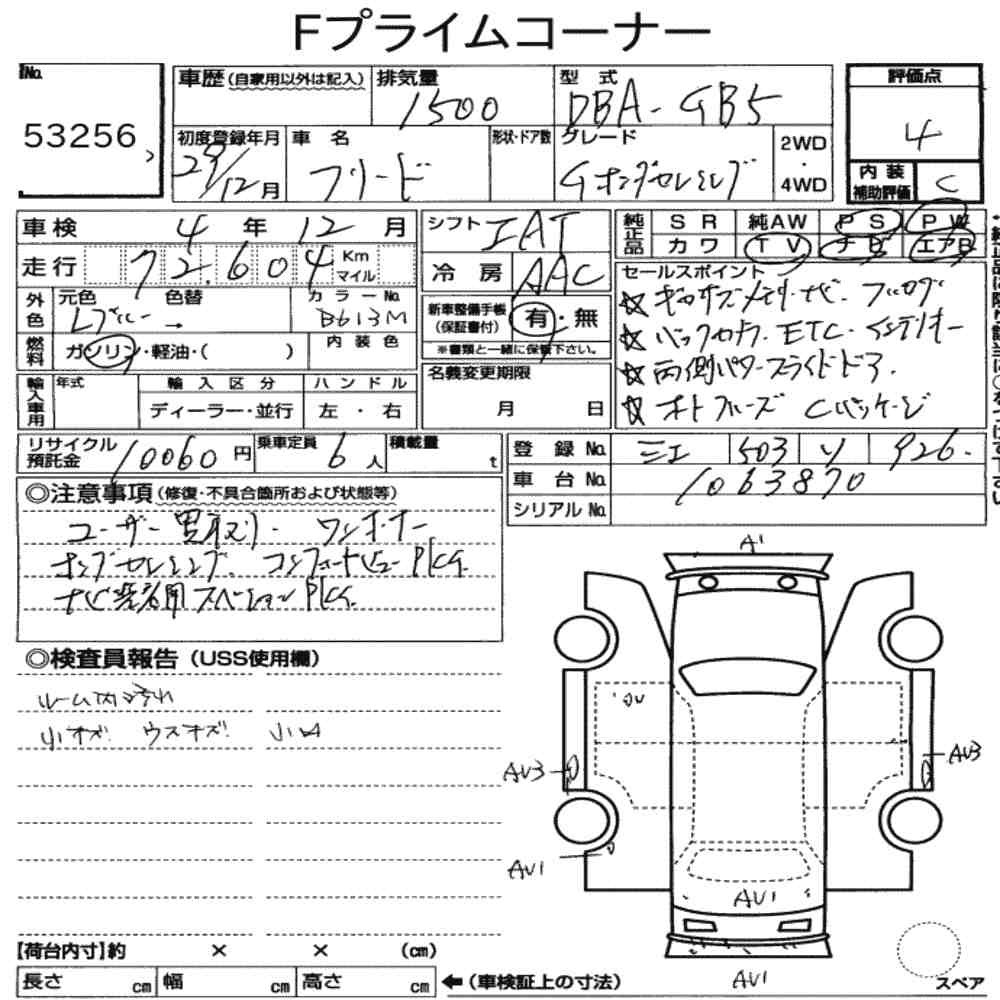 Fプライムコーナー
No.
53256
車歴 (自家用以外は記入)
排気量
1500
型式
DBA-GB5
評価点
4
内装
補助評価
C
初度登録年月
28/12月
車名
フリード
形状・ドア数
グレード
Gホンダセンシング
2WD
・
4WD
車検 4年 12月
走行 72,604 Km
マイル
外色
元色
色替
カラーNo.
B613M
燃料
ガソリン・軽油・( )
内装色
輸入車用
年式
輸入区分
ハンドル
ディーラー・並行
左・右
シフト
IAT
冷房 AAC
新車整備手帳
(保証書付)
有・無
※書類と一緒に保管下さい。
名義変更期限
月 日
純正品
SR 純AW PS PW
カワ TV ナビ エアB
セールスポイント
☆ ギャザズメモリーナビ. フルセグ
☆ バックカメラ. ETC. インテリキー
☆ 両側パワースライドドア.
☆ オートクルーズ Cパッケージ
リサイクル
預託金
10060円
乗車定員
6人
積載量
t
登録No. 三重 503 926
車台No. 1063870
シリアルNo.
◎注意事項 (修復・不具合箇所および状態等)
ユーザー買取り. ワンオーナー
ホンダセンシング. コンフォートビューPKG.
ナビ装着用スペシャルPKG.
◎検査員報告 (USS使用欄)
ルーム内汚れ
小キズ ウスキズ 小凹
A1
AV3
AV3
AV1
AV1
AV1
【荷台内寸】約 × × (cm)
長さ cm 幅 cm 高さ cm ←(車検証上の寸法)
スペア